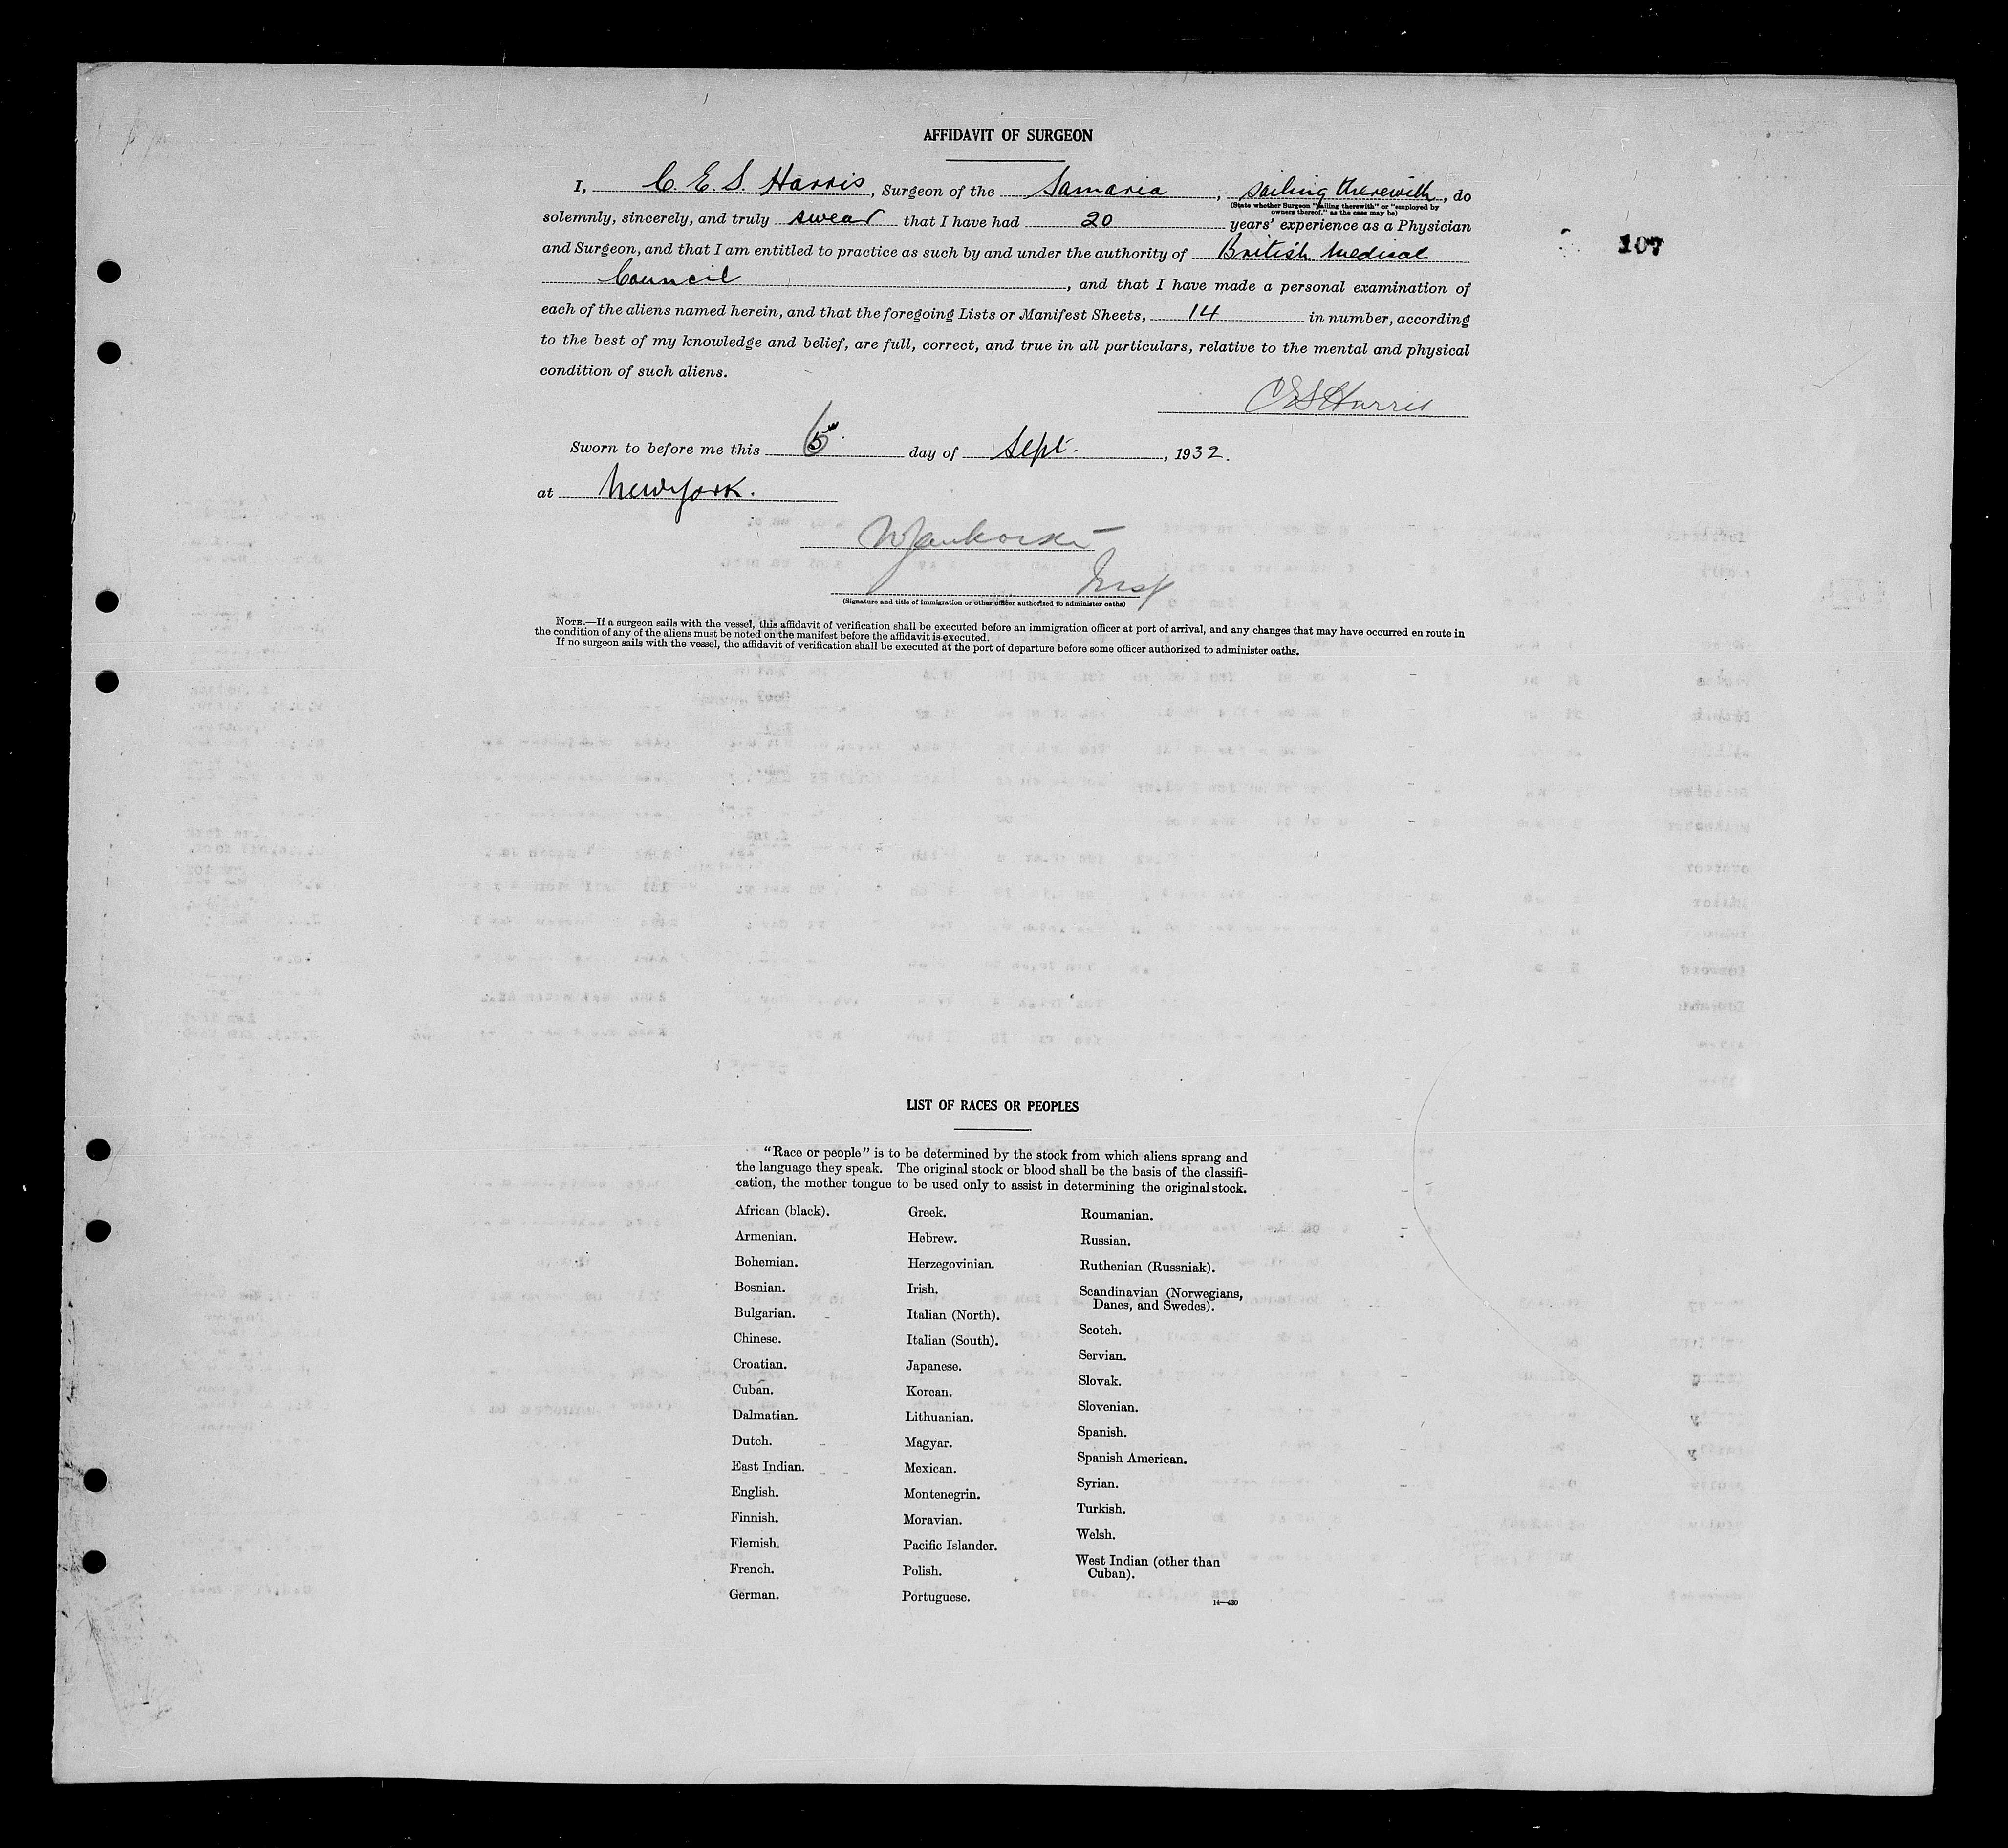 AFFIDAVIT OF SURGEON
I, C. E. S. Harris, Surgeon of the Samaria, sailing therewith, do
(State whether Surgeon "sailing therewith" or "employed by
owners thereof," as the case may be)
solemnly, sincerely, and truly swear that I have had 20 years' experience as a Physician
and Surgeon, and that I am entitled to practice as such by and under the authority of British Medical
107
Council, and that I have made a personal examination of
each of the aliens named herein, and that the foregoing Lists or Manifest Sheets, 14 in number, according
to the best of my knowledge and belief, are full, correct, and true in all particulars, relative to the mental and physical
condition of such aliens.
C E S Harris
Sworn to before me this day of Sept., 1932.
at New York.
Insp
(Signature and title of immigration or other officer authorized to administer oaths)
NOTE.—If a surgeon sails with the vessel, this affidavit of verification shall be executed before an immigration officer at port of arrival, and any changes that may have occurred en route in
the condition of any of the aliens must be noted on the manifest before the affidavit is executed.
If no surgeon sails with the vessel, the affidavit of verification shall be executed at the port of departure before some officer authorized to administer oaths.
LIST OF RACES OR PEOPLES
"Race or people" is to be determined by the stock from which aliens sprang and
the language they speak. The original stock or blood shall be the basis of the classifi-
cation, the mother tongue to be used only to assist in determining the original stock.
African (black).
Armenian.
Bohemian.
Bosnian.
Bulgarian.
Chinese.
Croatian.
Cuban.
Dalmatian.
Dutch.
East Indian.
English.
Finnish.
Flemish.
French.
German.
Greek.
Hebrew.
Herzegovinian.
Irish.
Italian (North).
Italian (South).
Japanese.
Korean.
Lithuanian.
Magyar.
Mexican.
Montenegrin.
Moravian.
Pacific Islander.
Polish.
Portuguese.
Roumanian.
Russian.
Ruthenian (Russniak).
Scandinavian (Norwegians,
Danes, and Swedes).
Scotch.
Servian.
Slovak.
Slovenian.
Spanish.
Spanish American.
Syrian.
Turkish.
Welsh.
West Indian (other than
Cuban).
14—430